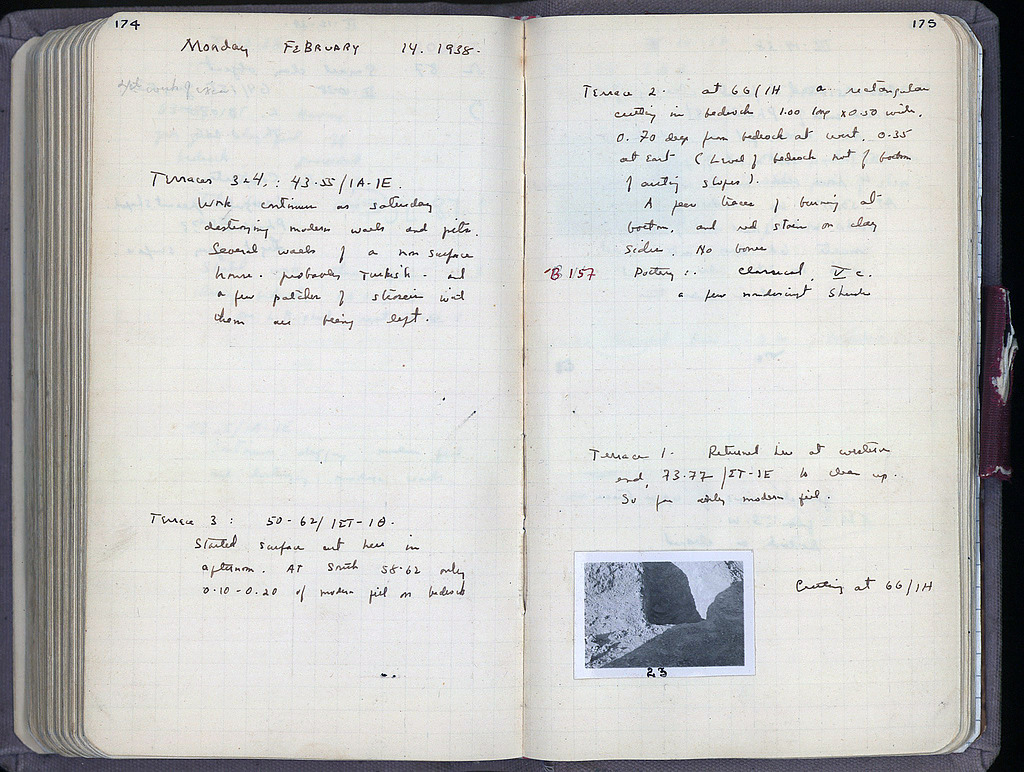 174
Monday FEBRUARY 14. 1938.
4th week of
Terraces 3 & 4. : 43-55/IA-IE.
Work continues as Saturday
destroying modern walls and pits.
Several walls of a non surface
house. probably Turkish. and
a few patches of strosis with
them are being left.
Terrace 3 : 50-62/ IΣT-IΘ.
Started surface cut here in
afternoon. At South 58-62 only
0.10-0.20 of modern fill on bedrock
175
Terrace 2. at 66/IH a rectangular
cutting in bedrock 1.00 long x 0.50 wide.
0.70 deep from bedrock at west, 0.35
at East (Level of bedrock not of bottom
of cutting slopes).
A few traces of burning at
bottom, and red stain on clay
sides. No bones
B 1157 Pottery :. Classical, V c.
a few nondescript sherds
Terrace 1. Returned here at western
end, 73-77/ΣT-IE to clean up.
So far only modern fill.
Cutting at 66/IH
23